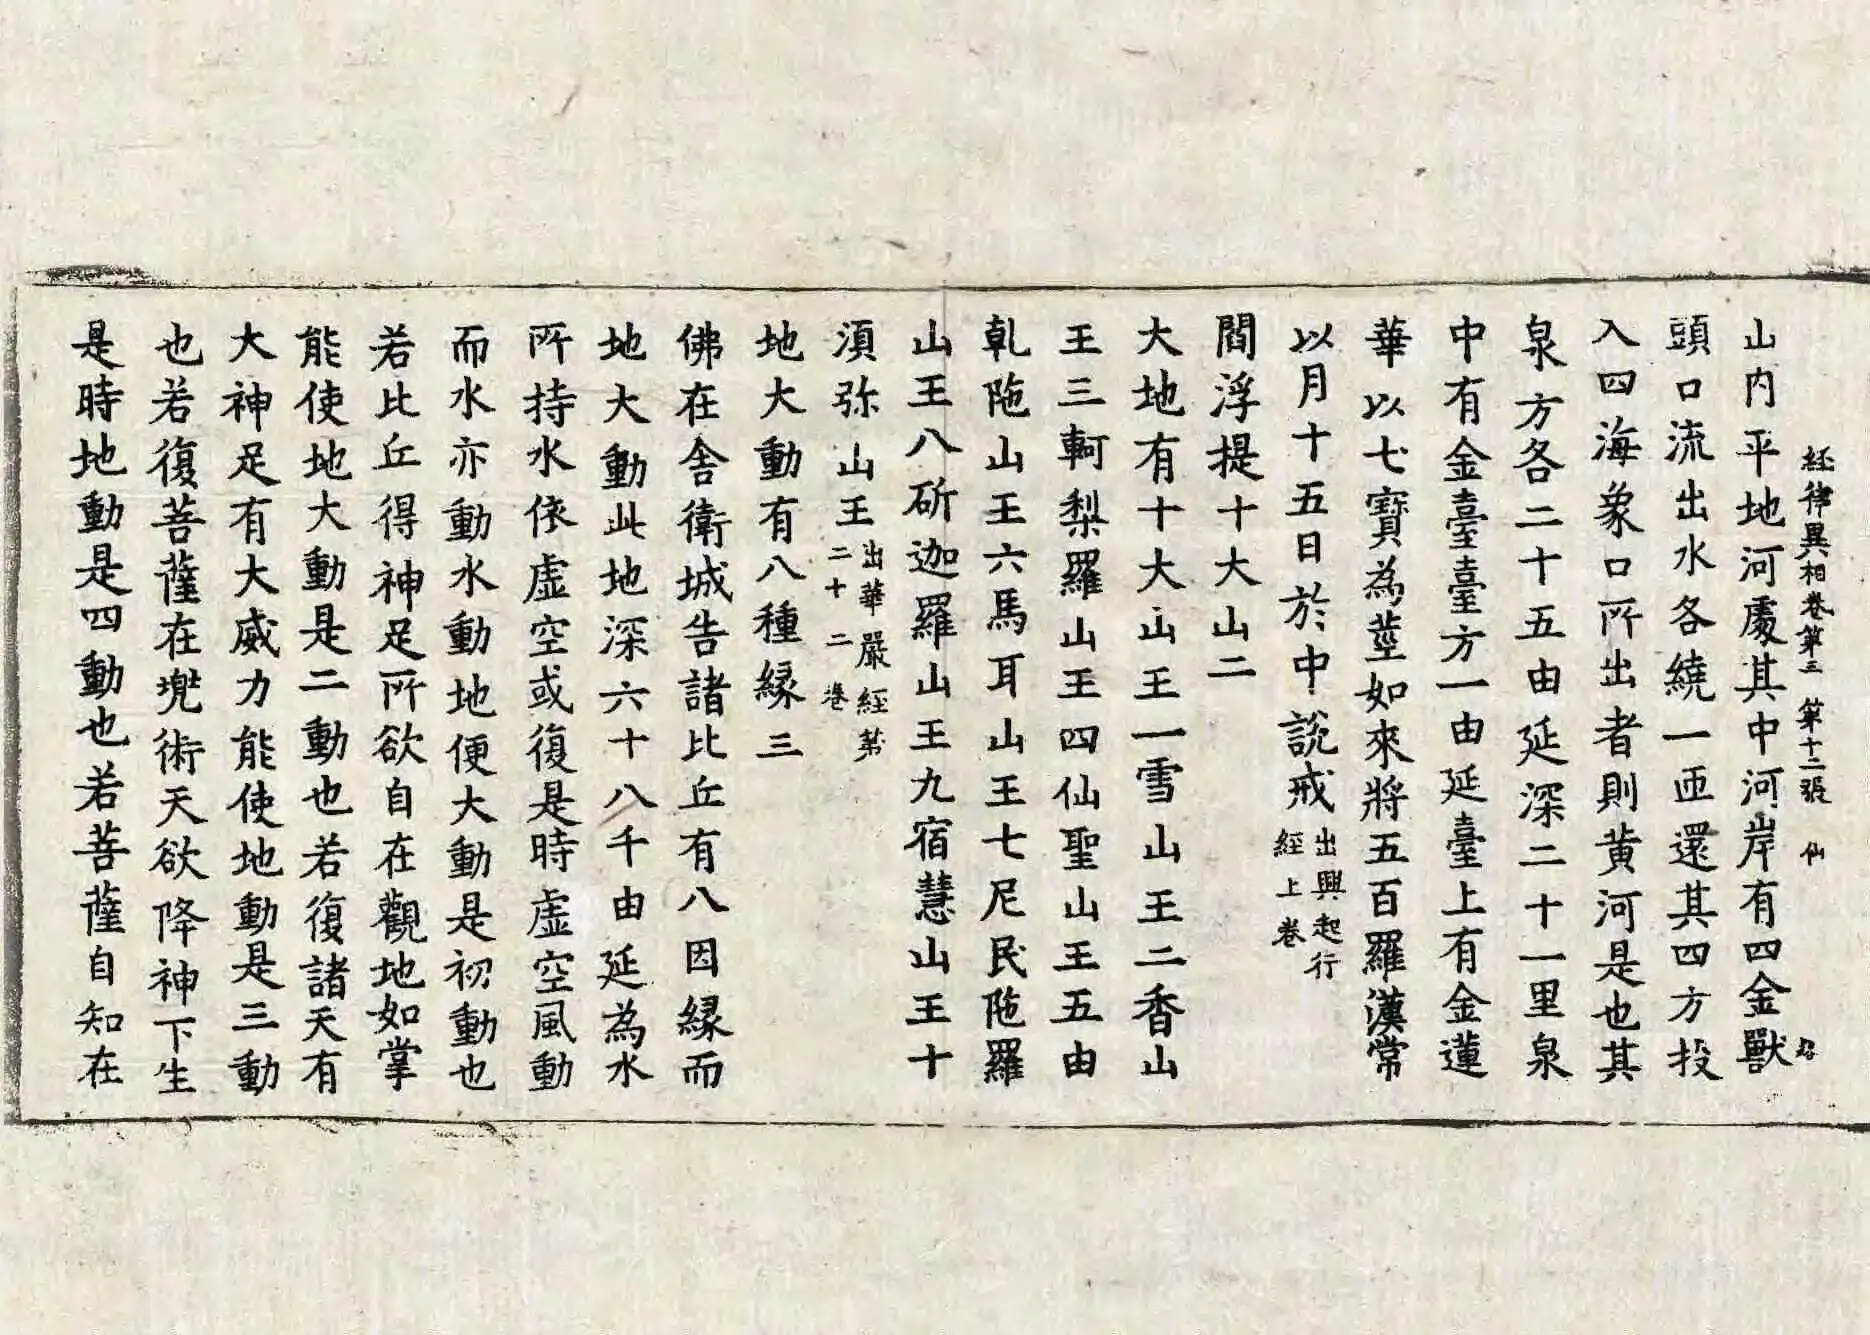 經律異相卷第三 第十二張 仙
山内平地河處其中河岸有四金獸
頭口流出水各繞一匝還其四方投
入四海象口所出者則黄河是也其
泉方各二十五由延深二十一里泉
中有金臺臺方一由延臺上有金蓮
華以七寶為莖如來將五百羅漢常
以月十五日於中説戒出興起行經上卷
閻浮提十大山二
大地有十大山王一雪山王二香山
王三軻梨羅山王四仙聖山王五由
乹陁山王六馬耳山王七尼民陁羅
山王八斫迦羅山王九宿慧山王十
湏弥山王出華嚴經第二十二卷
地大動有八種縁三
佛在舍衛城告諸比丘有八因縁而
地大動此地深六十八千由延為水
所持水依虚空或復是時虚空風動
而水亦動水動地便大動是初動也
若比丘得神足所欲自在觀地如掌
能使地大動是二動也若復諸天有
大神足有大威力能使地動是三動
也若復菩薩在兠術天欲降神下生
是時地動是四動也若菩薩自知在